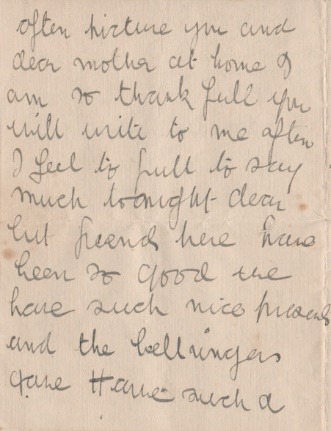 often picture you and
dear mother at home I
am so thank full you
will write to me often
I feel to full to say
much tonight dear
but friends here have
been so good we
have such nice presents
and the bellringers
gave Harrie such a